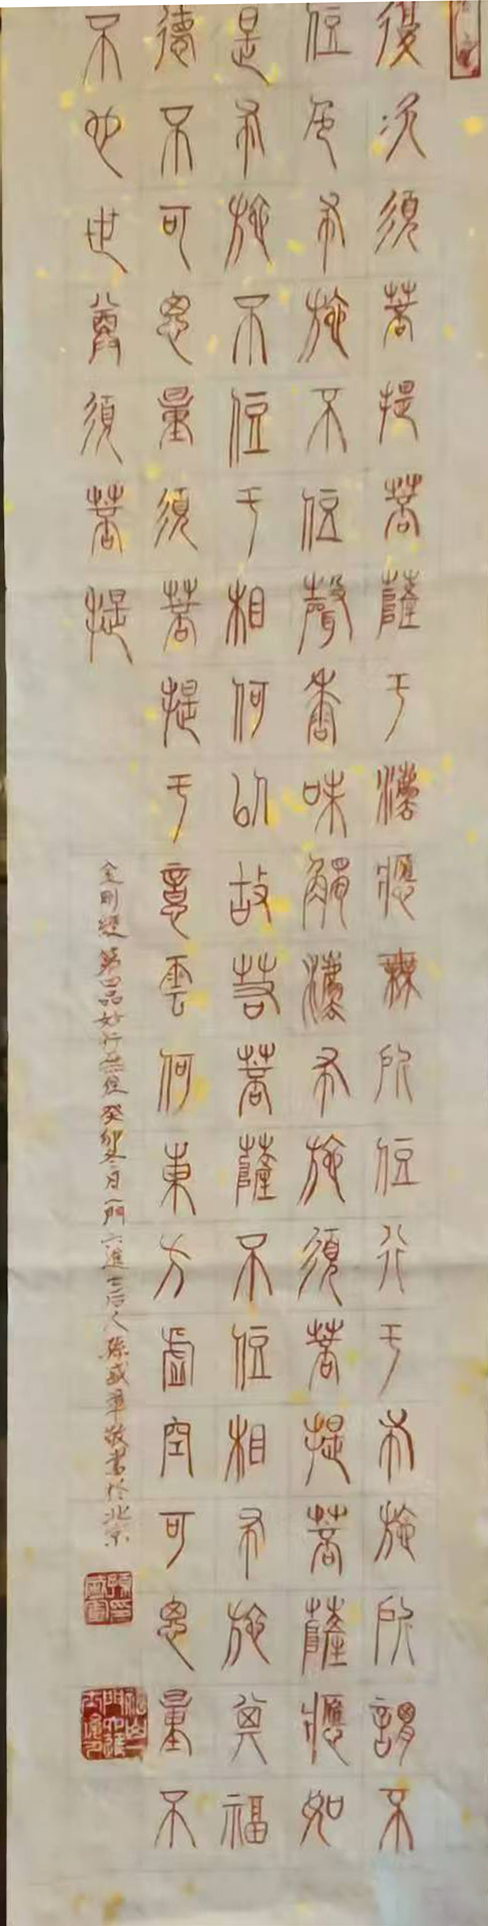 復次須菩提菩薩于灋應無所住行于布施所謂不
住色布施不住聲香味觸灋布施須菩提菩薩應如
是布施不住于相何以故若菩薩不住相布施其福
德不可思量須菩提于意雲何東方虛空可思量不
不也世尊須菩提
金剛經第四品妙行無住癸卯冬月一門六進士后人孫盛敬書於北京